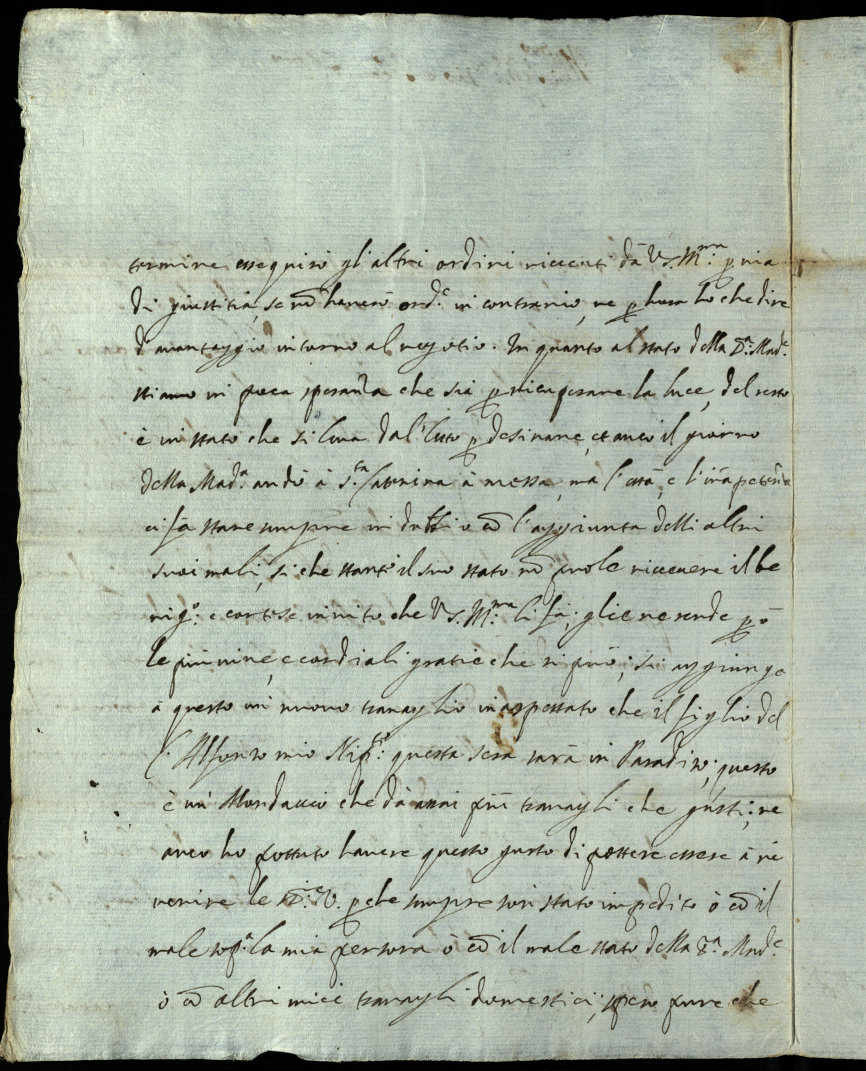 termine esseguirò gl'altri ordini riceuti dà V.S. M.ma p uia
di giustitia, se nō hauerò ord.e in contrario, ne p hora ho che dire
d'auantaggio intorno al negotio. In quanto al stato della S.a Mad.e
stiamo in poca speranza che sia p ricuperare la luce, del resto
è in stato che si leua dal letto p desinare, et anco il giorno
della Mad.a andò à S.ta Caterina à messa, ma l'età, e l'inapetenza
ci fà stare sempre in dubbio cō l'aggiunta delli altri
suoi mali, si che stante il suo stato nō puole riceuere il be
nig.o e cortese inuito che V.S. M.ma li fà; glie ne rende p ō
le più uiue, e cordiali gratie che si può; si aggiunge
à questo un nuouo trauaglio inaspettato che il figlio del
C. Alfonso mio Nip.e questa sera sarà in Paradiso; questo
è un Mondaccio che dà assai più trauagli che gusti; ne
anco ho possuto hauere questo gusto di possere essere à ri
uerire le p che sempre son stato impedito ò cō il
male sop.a la mia persona ò cō il male stato della S.a Mad.e
ò cō altri miei trauagli domestici; spero pure che